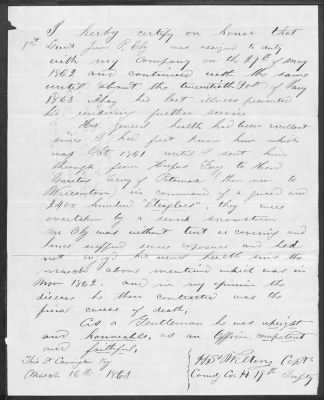 I herby certify on honor that
1st Lieut Jno P. Ely was assigned to duty
with my Company on the 27th of May
1862 and continued with the same
until about the twentieth 20th of Jany
1863 when his last illness prevented
his rendering further service
His General health had been excellent
since I had first knew him which
was Oct 1861 until I sent him
through from Harpers Fery to
Army of Potomac then near to
Warrenton, in command of a guard and
2400 hundred "Straglers" they were
overtaken by a severe snowstorm
Mr Ely was without tent or covering and
hence suffered severe exposure and had
not enjoyed his usual health since the
march above mentioned which was in
Nov 1862. and in my opinion the
disease he then contracted was the
final cause of death,
As a Gentleman he was upright
and honorable, as an Officer, competent
and faithful,
Capt
Comdg Co H 17th Infty
March 16th 1863